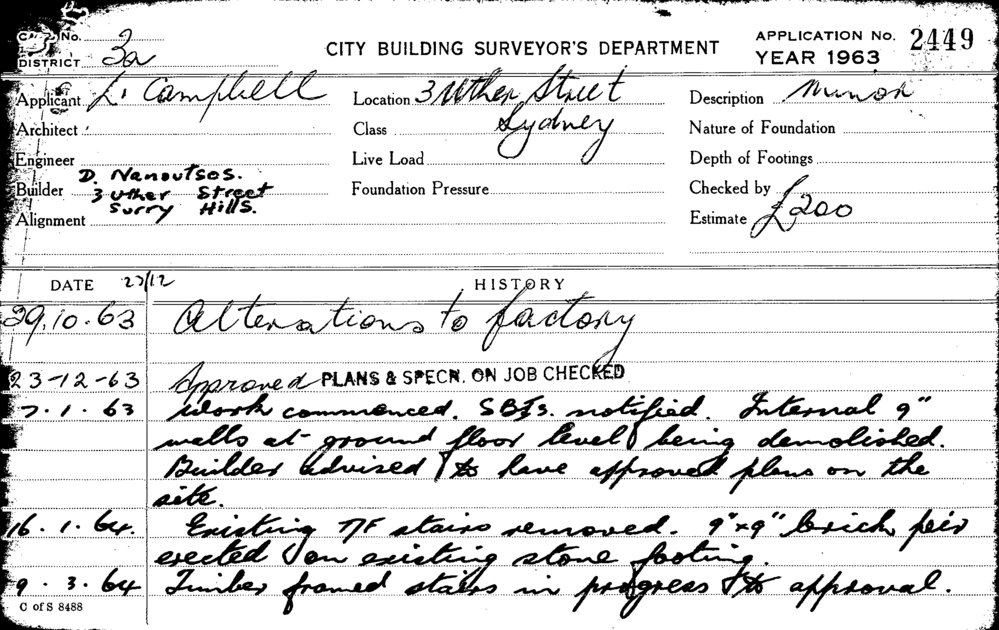 Card No.
DISTRICT 3a
CITY BUILDING SURVEYOR'S DEPARTMENT
APPLICATION No. 2449
YEAR 1963
Applicant L. Campbell
Location 3 Uther Street
Sydney
Description Minor
Architect
Class
Nature of Foundation
Engineer
Live Load
Depth of Footings
Builder D. Nanoutsos.
3 Uther Street
Surry Hills.
Foundation Pressure
Checked by
Alignment
Estimate £200
DATE 23/12 HISTORY
29.10.63 Alterations to factory
23-12-63 Approved PLANS & SPECN. ON JOB CHECKED
7.1.63 Work commenced. SBIs. notified. Internal 9"
walls at ground floor level being demolished.
Builder advised to have approved plans on the
site.
16.1.64. Existing T/F stairs removed. 9"x9" brick peir
erected on existing stone footing.
9.3.64 Timber framed stairs in progress to approval.
C of S 8488